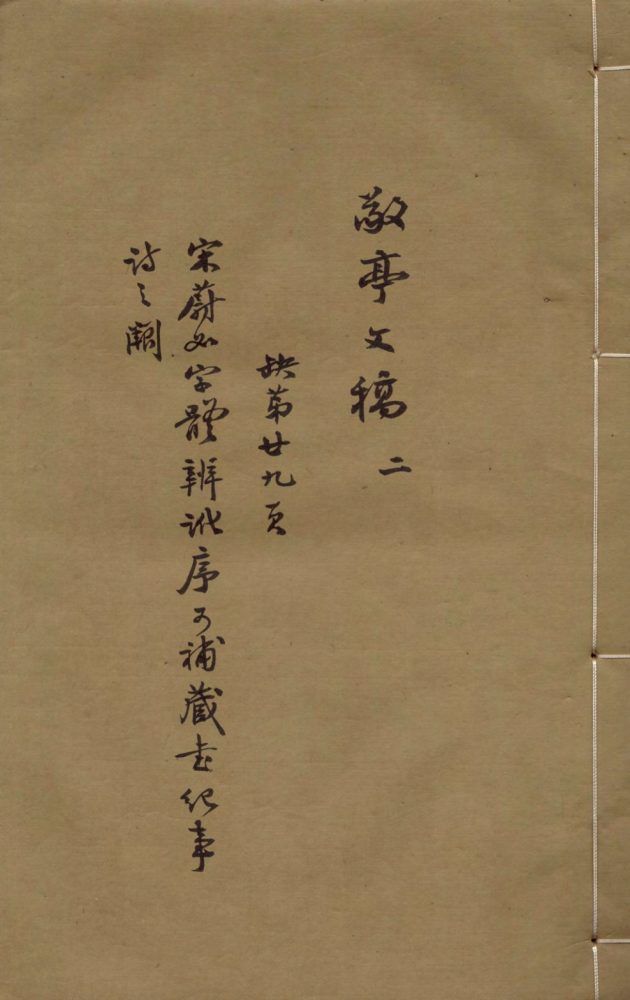 敬亭文稿 二
缺第廿九页
宋蔚如字體辨訛序可補藏书纪事
詩之闕